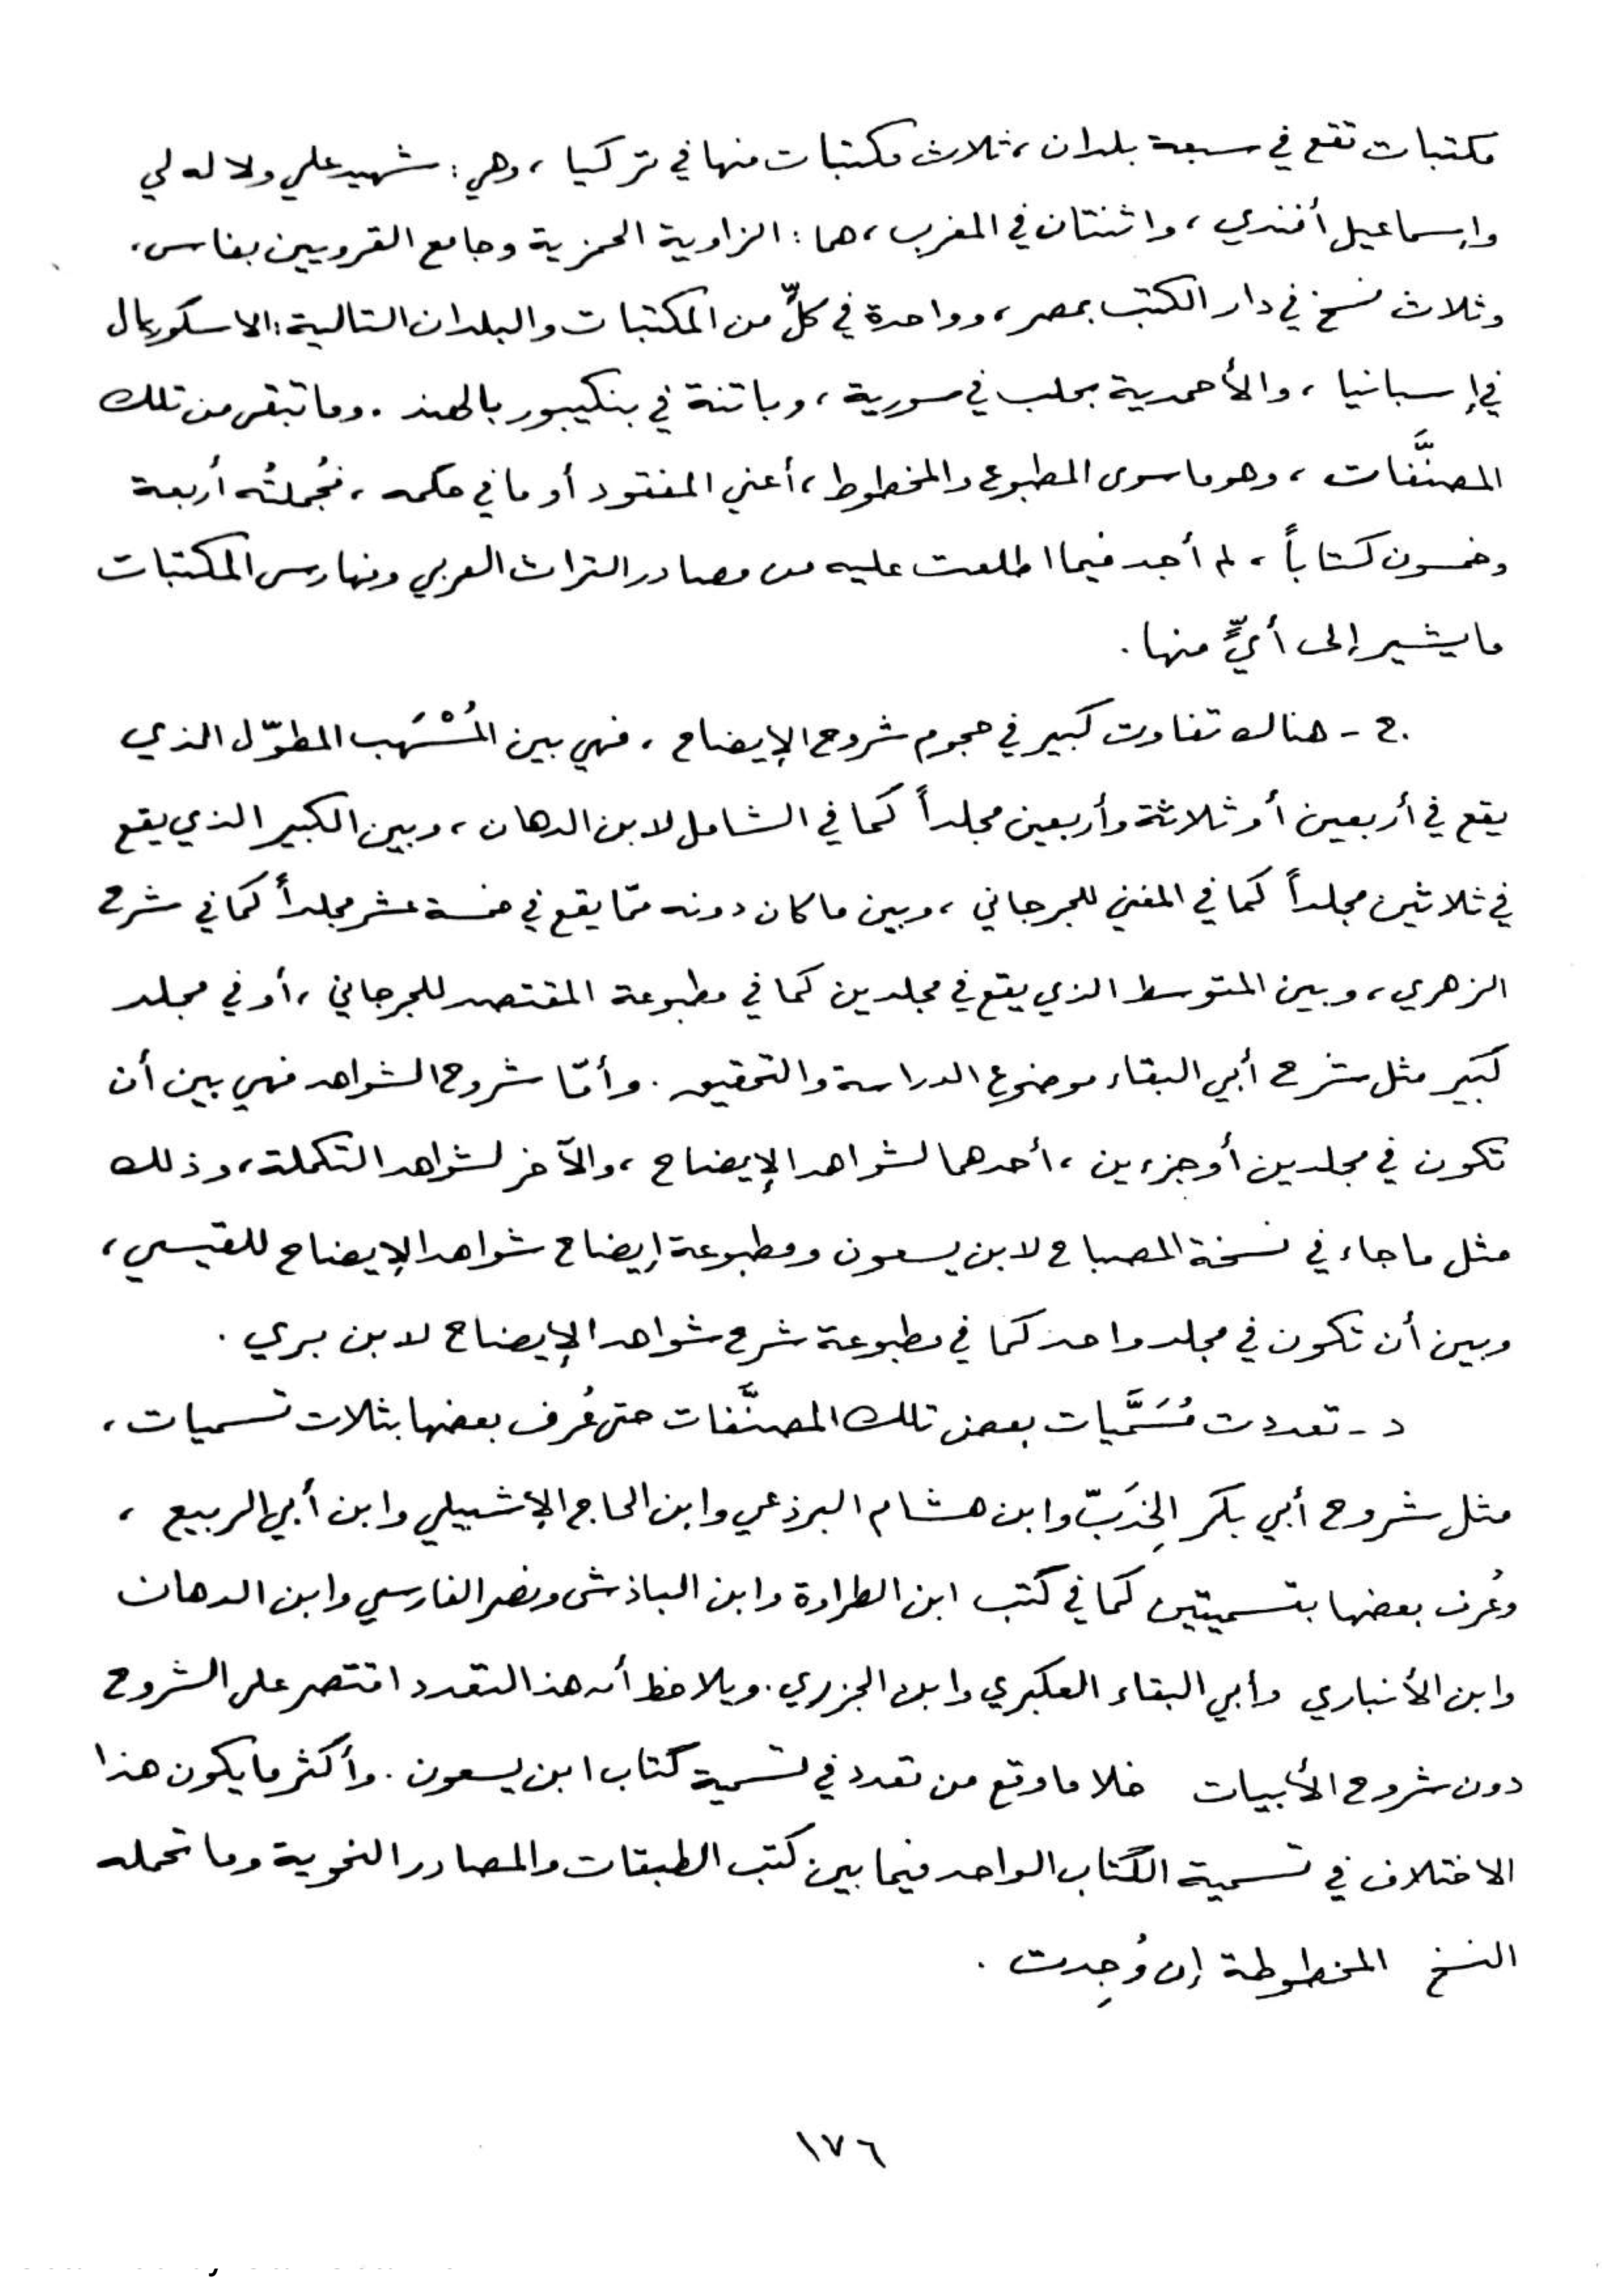 مكتبات تقع في سبعة بلدان، ثلاث مكتبات منها في تركيا، وهي: شهيد علي ولا له لي
وإسماعيل أفندي، واثنتان في المغرب، هما: الزاوية الحمزية وجامع القرويين بفاس،
وثلاث نسخ في دار الكتب بمصر، وواحدة في كلٍّ من المكتبات والبلدان التالية: الاسكوريال
في إسبانيا، والأحمدية بحلب في سورية، وباتنة في بنكيبور بالهند. وما تبقى من تلك
المصنَّفات، وهو ما سوى المطبوع والمخطوط، أعني المفقود أو ما في حكمه، فجُملتُه أربعة
وخمسون كتاباً، لم أجد فيما اطلعت عليه من مصادر التراث العربي وفهارس المكتبات
ما يشير إلى أيٍّ منها.
ج - هناك تفاوت كبير في حجوم شروح الإيضاح، فهي بين المُسْهَب المطوّل الذي
يقع في أربعين أو ثلاثة وأربعين مجلداً كما في الشامل لابن الدهان، وبين الكبير الذي يقع
في ثلاثين مجلداً كما في المغني للجرجاني، وبين ما كان دونه ممّا يقع في خمسة عشر مجلداً كما في شرح
الزهري، وبين المتوسط الذي يقع في مجلدين كما في مطبوعة المقتصد للجرجاني، أو في مجلد
كبير مثل شرح أبي البقاء موضوع الدراسة والتحقيق. وأمّا شروح الشواهد فهي بين أن
تكون في مجلدين أو جزءين، أحدهما لشواهد الإيضاح، والآخر لشواهد التكملة، وذلك
مثل ما جاء في نسخة المصباح لابن يسعون ومطبوعة إيضاح شواهد الإيضاح للقيسي،
وبين أن تكون في مجلد واحد كما في مطبوعة شرح شواهد الإيضاح لابن بري.
د - تعددت مُسَمَّيات بعض تلك المصنَّفات حتى عُرف بعضها بثلاث تسميات،
مثل شروح أبي بكر الخِدَبّ وابن هشام البرذعي وابن الحاج الإشبيلي وابن أبي الربيع،
وعُرف بعضها بتسميتين كما في كتب ابن الطراوة وابن الباذش ونصر الفارسي وابن الدهان
وابن الأنباري وأبي البقاء العكبري وابن الجزري. ويلاحظ أن هذا التعدد اقتصر على الشروح
دون شروح الأبيات خلا ما وقع من تعدد في تسمية كتاب ابن يسعون. وأكثر ما يكون هذا
الاختلاف في تسمية الكتاب الواحد فيما بين كتب الطبقات والمصادر النحوية وما تحمله
النسخ المخطوطة إن وُجِدت.
١٧٦